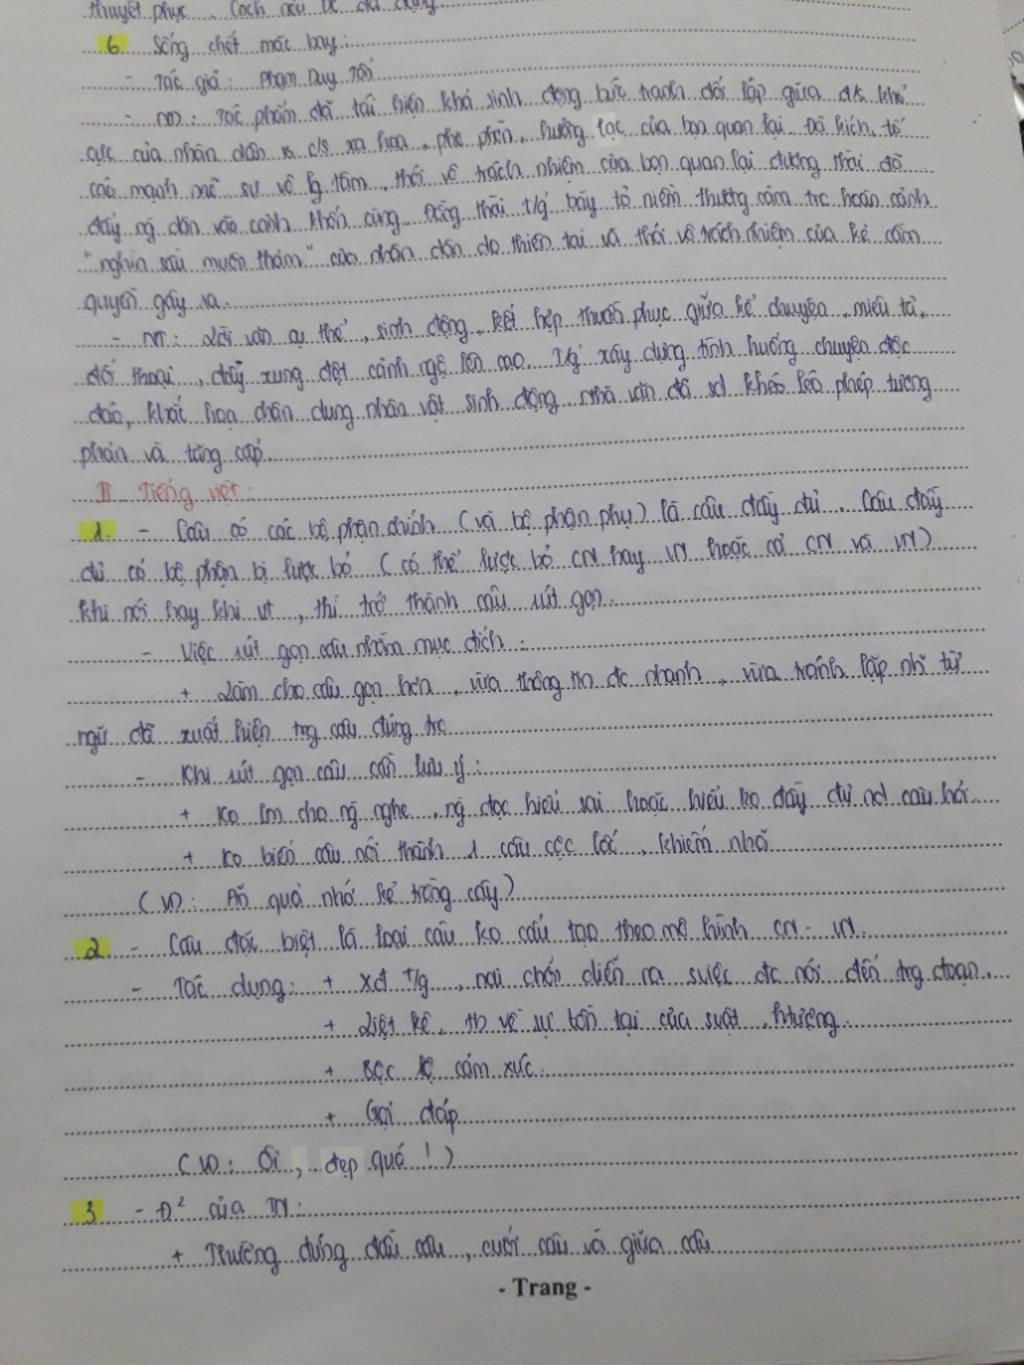 thuyết phục. Cách nêu
6 Sống chết mặc bay:
- Tác giả: Phạm Duy Tốn
- ND: Tác phẩm đã tái hiện khá sinh động bức tranh đối lập giữa đ/s khổ
cực của nhân dân vs c/s xa hoa, phê phán, hưởng lạc của bọn quan lại. Đả kích, tố
cáo mạnh mẽ sự vô lg tâm, thói vô trách nhiệm của bọn quan lại đương thời đã
đẩy ng dân vào cảnh khốn cùng. Đồng thời t/g bày tỏ niềm thương cảm trc hoàn cảnh
"nghìn sầu muôn thảm" của nhân dân do thiên tai và thói vô trách nhiệm của kẻ cầm
quyền gây ra.
- NT: Lời văn cụ thể, sinh động, kết hợp thuần phục giữa kể chuyện, miêu tả,
đối thoại, đẩy xung đột cảnh ngộ lên cao. T/g xây dựng tình huống chuyện độc
đáo, khắc họa chân dung nhân vật sinh động. nhà văn đã sd khéo léo phép tương
phản và tăng cấp.
II Tiếng việt:
1. - Câu có các bộ phận chính (và bộ phận phụ) là câu đầy đủ. Câu đầy
đủ có bộ phận bị lược bỏ (có thể lược bỏ CN hay VN hoặc cả CN và VN)
khi nói hay khi vt, thì trở thành câu rút gọn.
- Việc rút gọn câu nhằm mục đích:
+ Làm cho câu gọn hơn, vừa thông tin đc nhanh, vừa tránh lặp nh từ
ngữ đã xuất hiện trg câu đứng trc
- Khi rút gọn câu cần lưu ý:
+ Ko lm cho ng nghe, ng đọc hiểu sai hoặc hiểu ko đầy đủ nd câu nói
+ Ko biến câu nói thành 1 câu cộc lốc, khiếm nhã
(VD: Ăn quả nhớ kẻ trồng cây)
2 - Câu đặc biệt là loại câu ko cấu tạo theo mô hình CN - VN
- Tác dụng: + Xđ T/g, nơi chốn diễn ra sviệc đc nói đến trg đoạn.
+ Liệt kê, tb về sự tồn tại của svật, htượng
+ Bộc lộ cảm xúc.
+ Gọi đáp
(VD: Ôi, đẹp quá!)
3 - Đ² của TN:
+ Thường đứng đầu câu, cuối câu và giữa câu
- Trang -